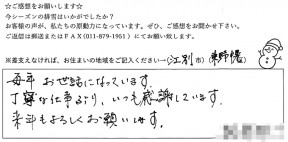 ☆ご感想をお願いします☆
今シーズンの排雪はいかがでしたか？
お客様の声が、私たちの原動力になっています。ぜひ、ご感想をお聞かせ下さい。
ご返信は郵送またはＦＡＸ(011-879-1951) にてお願い致します。
※差支えなければ、お住まいの地域をご記入ください…(江別市) 東野幌
毎年 お世話になっています。
丁寧な仕事ぶり、いつも感謝しています。
来年もよろしくお願いします。